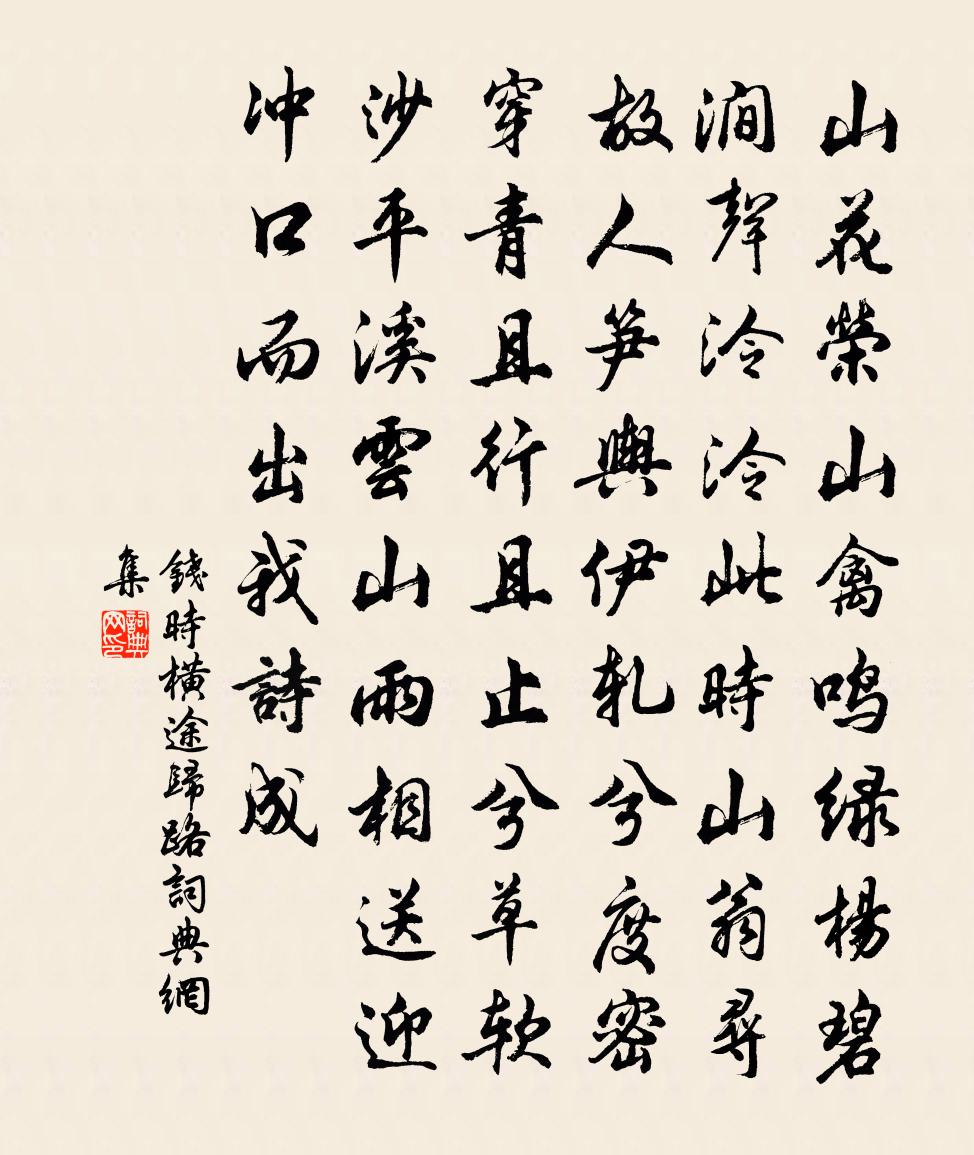 山花榮山禽鳴绿楊碧
澗聲泠泠此時山翁尋
故人笋輿伊軋兮度密
穿青且行且止兮草軟
沙平溪雲山雨相送迎
冲口而出我詩成
錢時橫途歸路詞典網
集
詞典网印